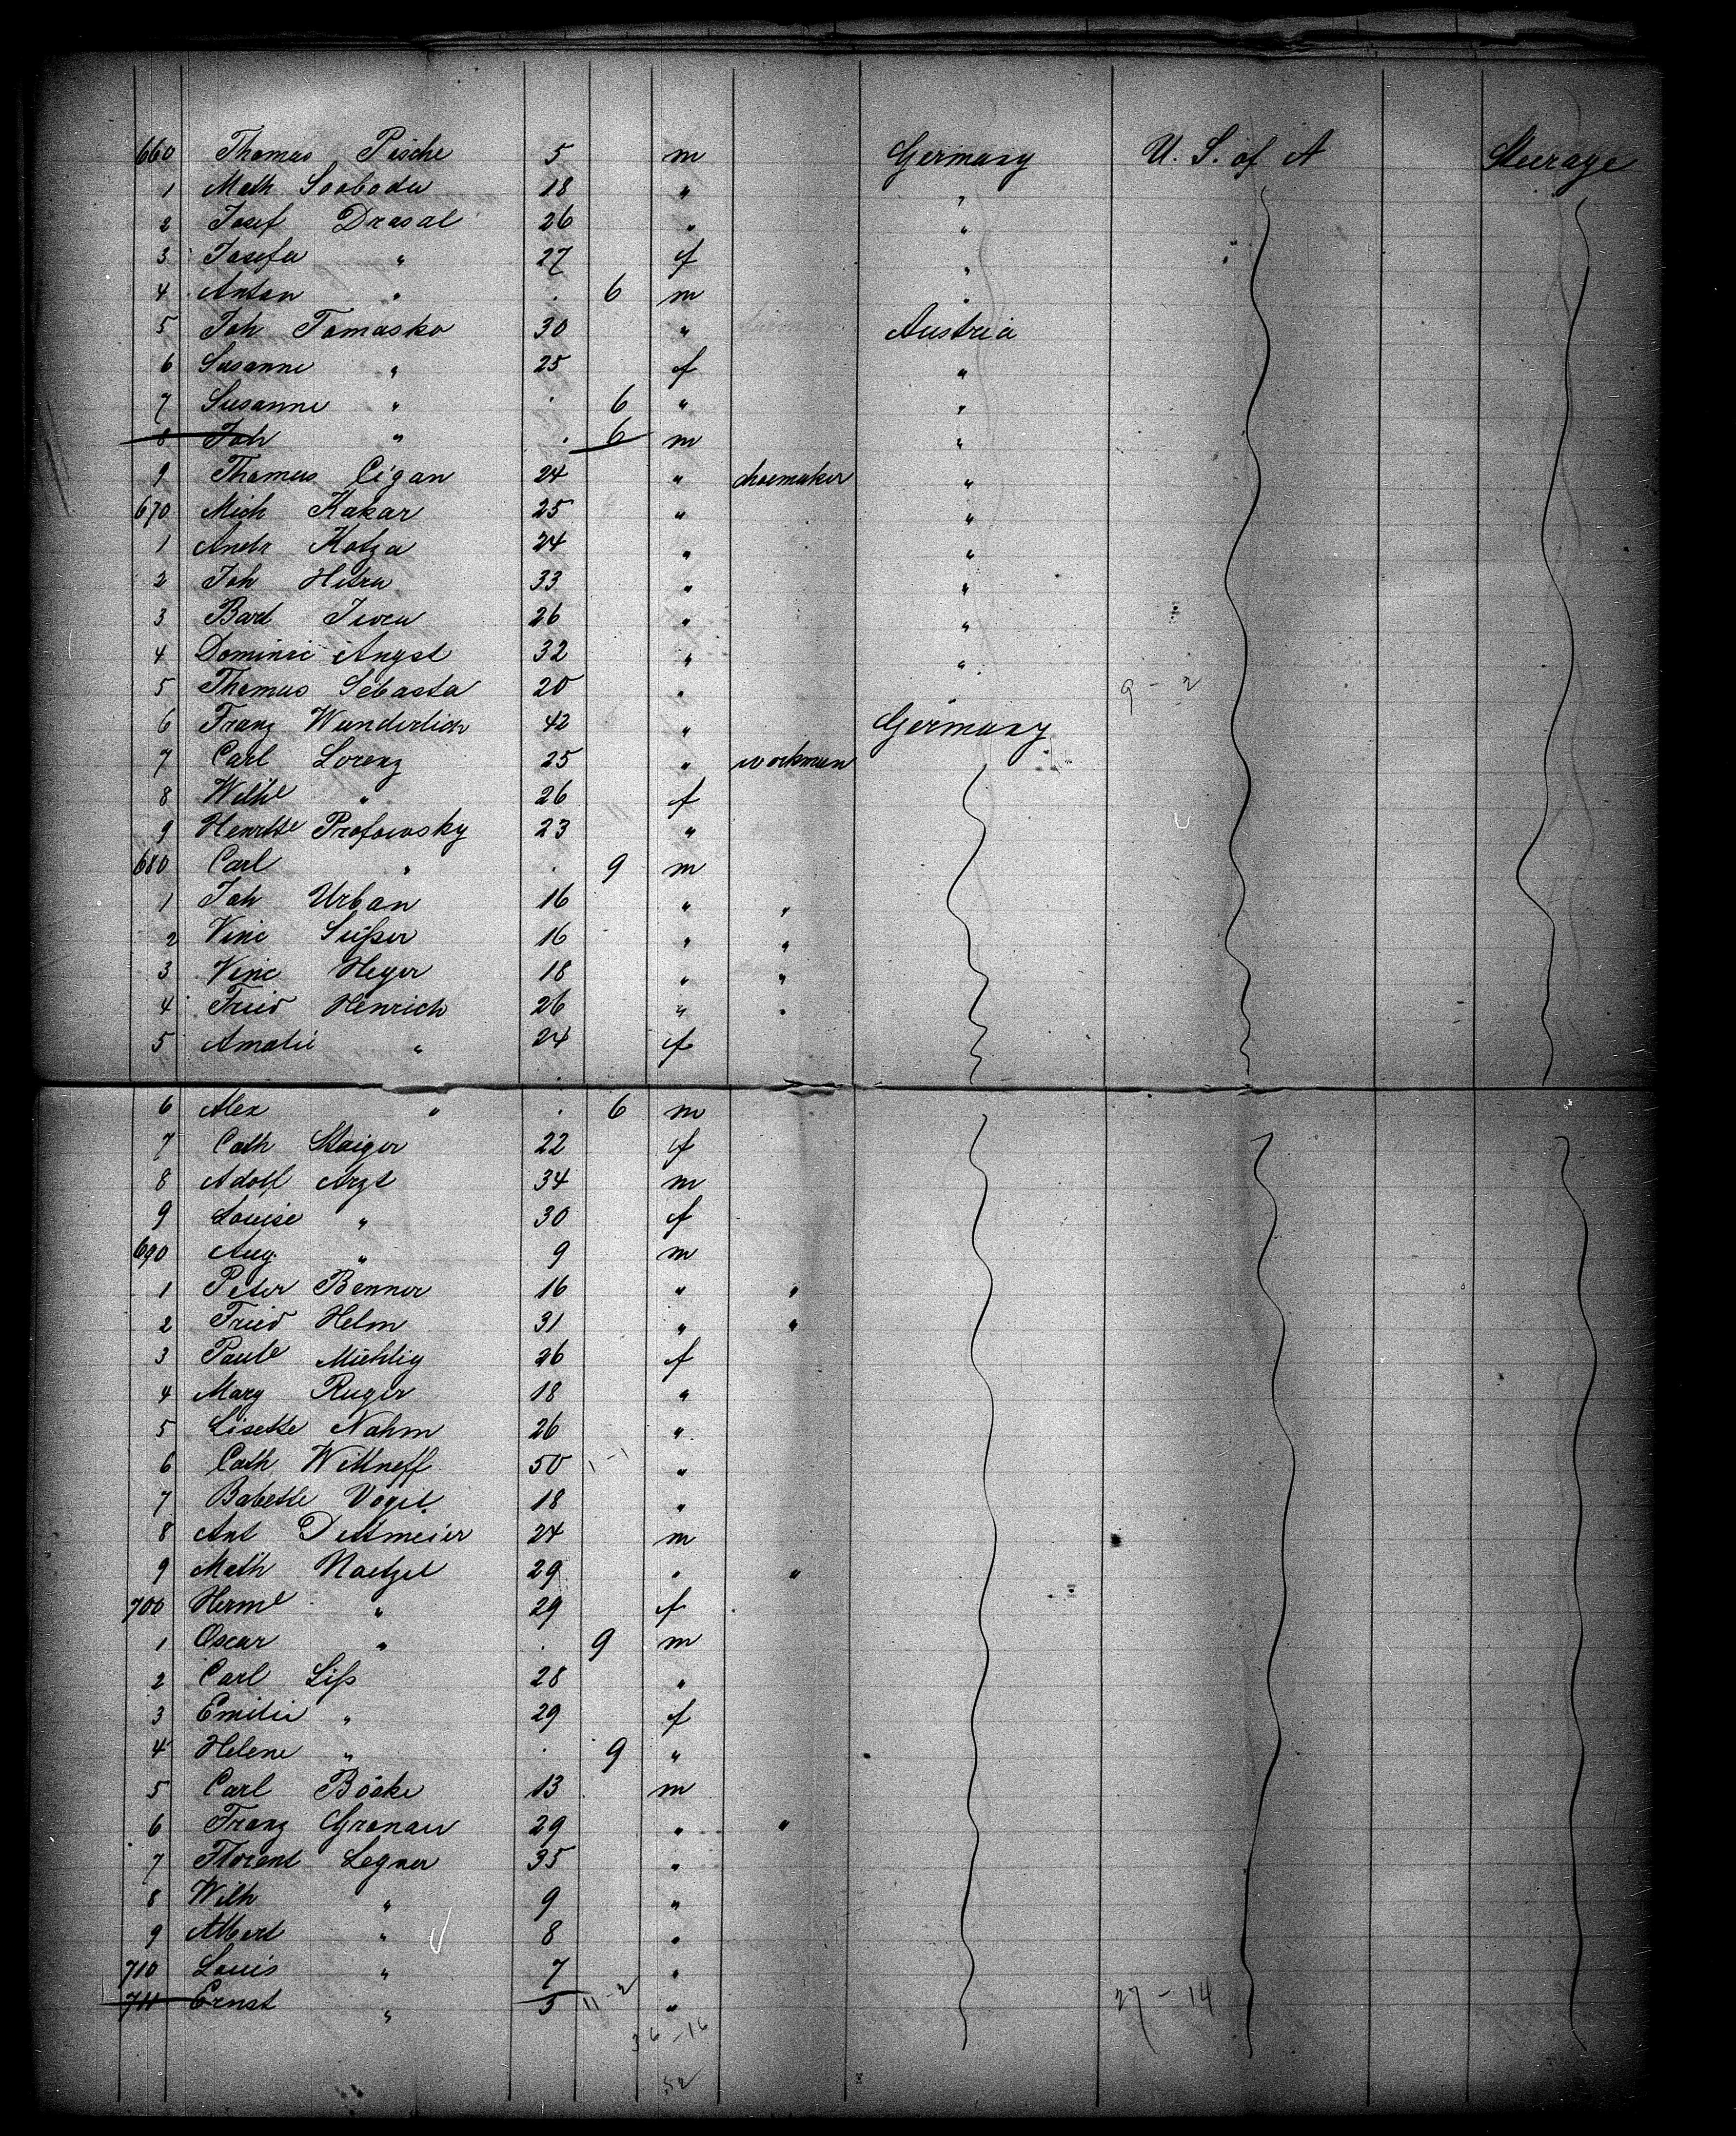 660 Thomas Pesche 5 m Germany U. S. of A Steerage
1 Math Sooboda 18 " "
2 Josef Drasal 26 " "
3 Josefa " 27 f "
4 Anton " . 6 m "
5 Joh Tomasko 30 " Austria
6 Susanne " 25 f "
7 Susanne " . 6 " "
8 Joh " . 6 m "
9 Thomas Cigan 24 " shoemaker "
670 Mich Kakar 25 " "
1 Andr Kotza 24 " "
2 Joh Hitra 33 " "
3 Bart 26 " "
4 Dominic Angst 32 " "
5 Thomas Sebasta 20 " 9 - 2
6 Franz Wunderlich 42 " Germany
7 Carl Lorenz 25 " workman
8 Wilhe " 26 f
9 Henrtte Profowsky 23 "
680 Carl " . 9 m
1 Joh Urban 16 " "
2 Vinc Süßer 16 " "
3 Vinc Heger 18 " "
4 Fried Henrich 26 " "
5 Amalie " 24 f
6 Alex " . 6 m
7 Cath Staiger 22 f
8 Adolf Arzt 34 m
9 Louise " 30 f
690 Aug. " 9 m
1 Peter Benner 16 " "
2 Fried Helm 31 " "
3 Paule Müehlig 26 f
4 Mary Ruger 18 "
5 Lisette Nahm 26 "
6 Cath Wittneff 50 1-1 "
7 Babette Vogel 18 "
8 Ant Dettmeier 24 m
9 Math Naetzel 29 " "
700 Herme " 29 f
1 Oscar " . 9 m
2 Carl Liß 28 "
3 Emilie " 29 f
4 Helene " . 9 "
5 Carl Böcke 13 m
6 Franz Gronau 29 " "
7 Florent Legner 35 "
8 Wilh " 9 "
9 Albert " 8 "
710 Louis " 7 "
711 Ernst " 5 11-2 " 27 - 14
36-16
52